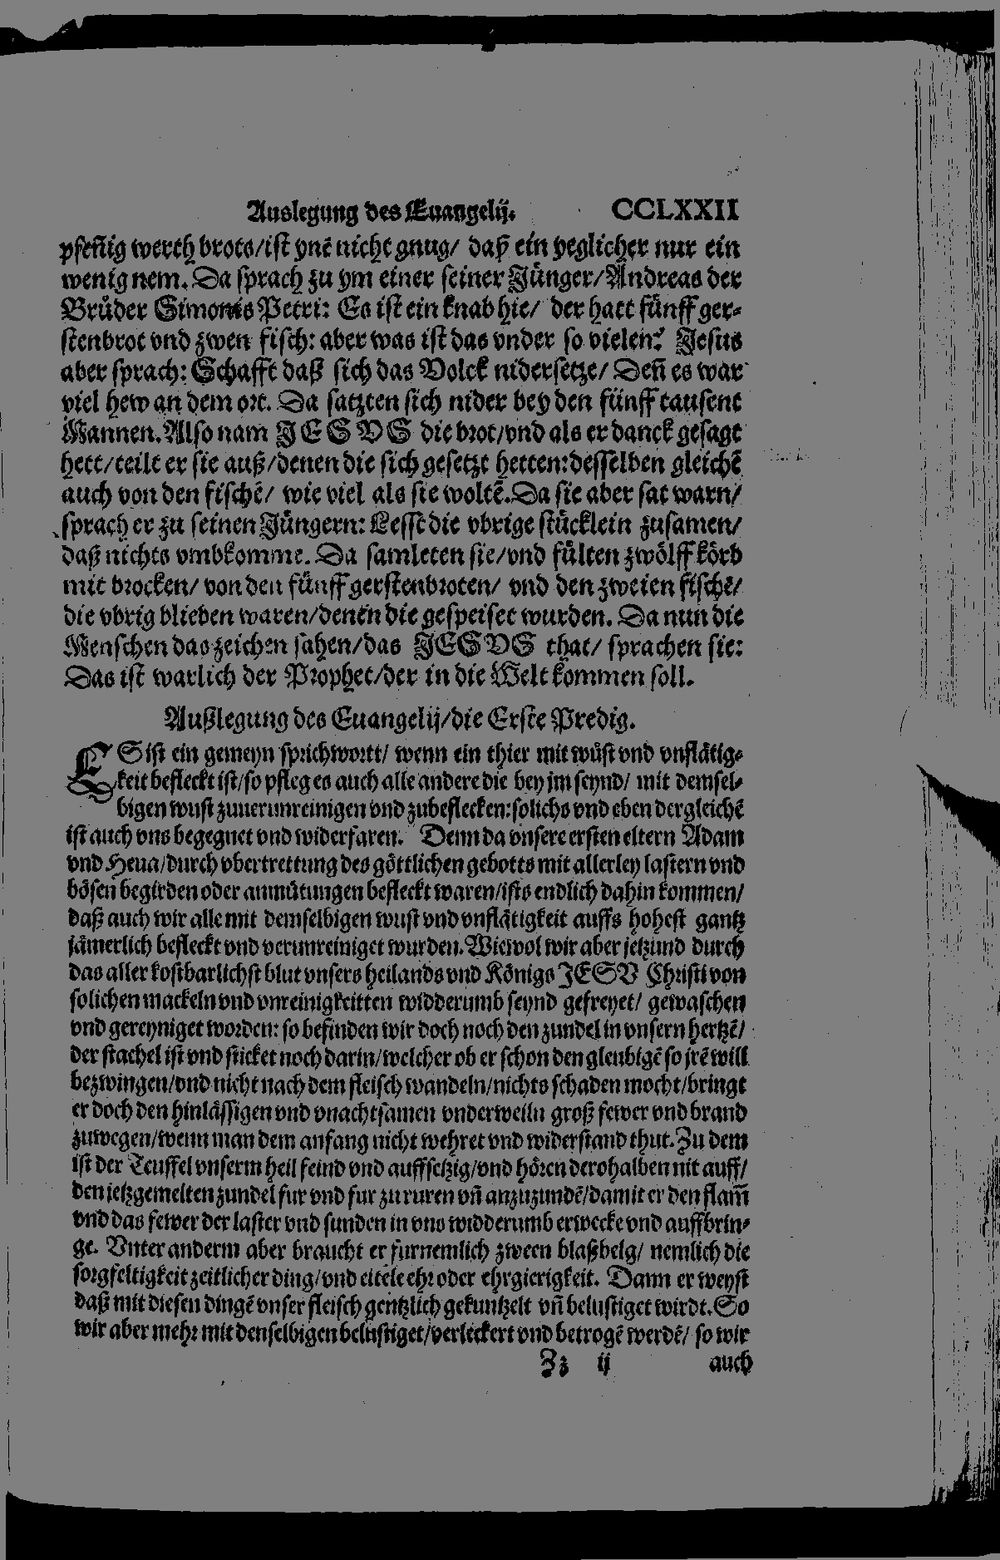 Auslegung des Euangelij. CCLXXII
pfeñig werth brots/ist ynē nicht gnug/ daß ein yeglicher nur ein
wenig nem. Da sprach zu ym einer seiner Jünger/Andreas der
Brůder Simonis Petri: Es ist ein knab hie/ der hatt fünff ger-
stenbrot vnd zwen fisch: aber was ist das vnder so vielen? Jesus
aber sprach: Schafft daß sich das Volck nidersetze/ Deñ es war
viel hew an dem ort. Da satzten sich nider bey den fünff tausent
Mannen. Also nam JESVS die brot/vnd als er danck gesagt
hett/teilt er sie auß/denen die sich gesetzt hetten: desselben gleichē
auch von den fischē/ wie viel als sie woltē. Da sie aber sat warn/
sprach er zu seinen Jüngern: Lesst die vbrige stücklein zusamen/
daß nichts vmbkomme. Da samleten sie/vnd fülten zwölff körb
mit brocken/ von den fünff gerstenbroten/ vnd den zweien fischē/
die vbrig blieben waren/denen die gespeiset wurden. Da nun die
Menschen das zeichen sahen/das JESVS that/ sprachen sie:
Das ist warlich der Prophet/der in die Welt kommen soll.
Außlegung des Euangelij/die Erste Predig.
ES ist ein gemeyn sprichwortt/ wenn ein thier mit wůst vnd vnflätig-
keit befleckt ist/so pfleg es auch alle andere die bey im seynd/ mit demsel-
bigen wust zuuerunreinigen vnd zubeflecken: solichs vnd eben dergleichē
ist auch vns begegnet vnd widerfaren. Denn da vnsere ersten eltern Adam
vnd Heua/durch vbertrettung des göttlichen gebotts mit allerley lastern vnd
bösen begirden oder anmütungen befleckt waren/ists endlich dahin kommen/
daß auch wir alle mit demselbigen wust vnd vnflätigkeit auffs hohest gantz
jämerlich befleckt vnd verunreiniget wurden. Wiewol wir aber jetzund durch
das aller kostbarlichst blut vnsers heilands vnd Königs JESV Christi von
solichen mackeln vnd vnreinigkeitten widderumb seynd gefreyet/ gewaschen
vnd gereyniget worden: so befinden wir doch noch den zundel in vnsern hertzē/
der stachel ist vnd sticket noch darin/welcher ob er schon den gleubigē so jrē will
bezwingen/vnd nicht nach dem fleisch wandeln/nichts schaden mocht/bringt
er doch den hinlässigen vnd vnachtsamen vnderweiln groß fewer vnd brand
zuwegen/wenn man dem anfang nicht wehret vnd widerstand thut. Zu dem
ist der Teuffel vnserm heil feind vnd auffsetzig/vnd hören derohalben nit auff/
den jetzgemelten zundel fur vnd fur zu ruren vñ anzuzundē/damit er den flam̄
vnd das fewer der laster vnd sunden in vns widderumb erwecke vnd auffbrin-
ge. Vnter anderm aber braucht er furnemlich zween blaßbelg/ nemlich die
sorgfeltigkeit zeitlicher ding/vnd eitele ehr oder ehrgierigkeit. Dann er weyst
daß mit diesen dingē vnser fleisch gentzlich gekuntzelt vñ belustiget wirdt. So
wir aber mehr mit denselbigen belustiget/verleckert vnd betrogē werdē/ so wir
Zz ij auch